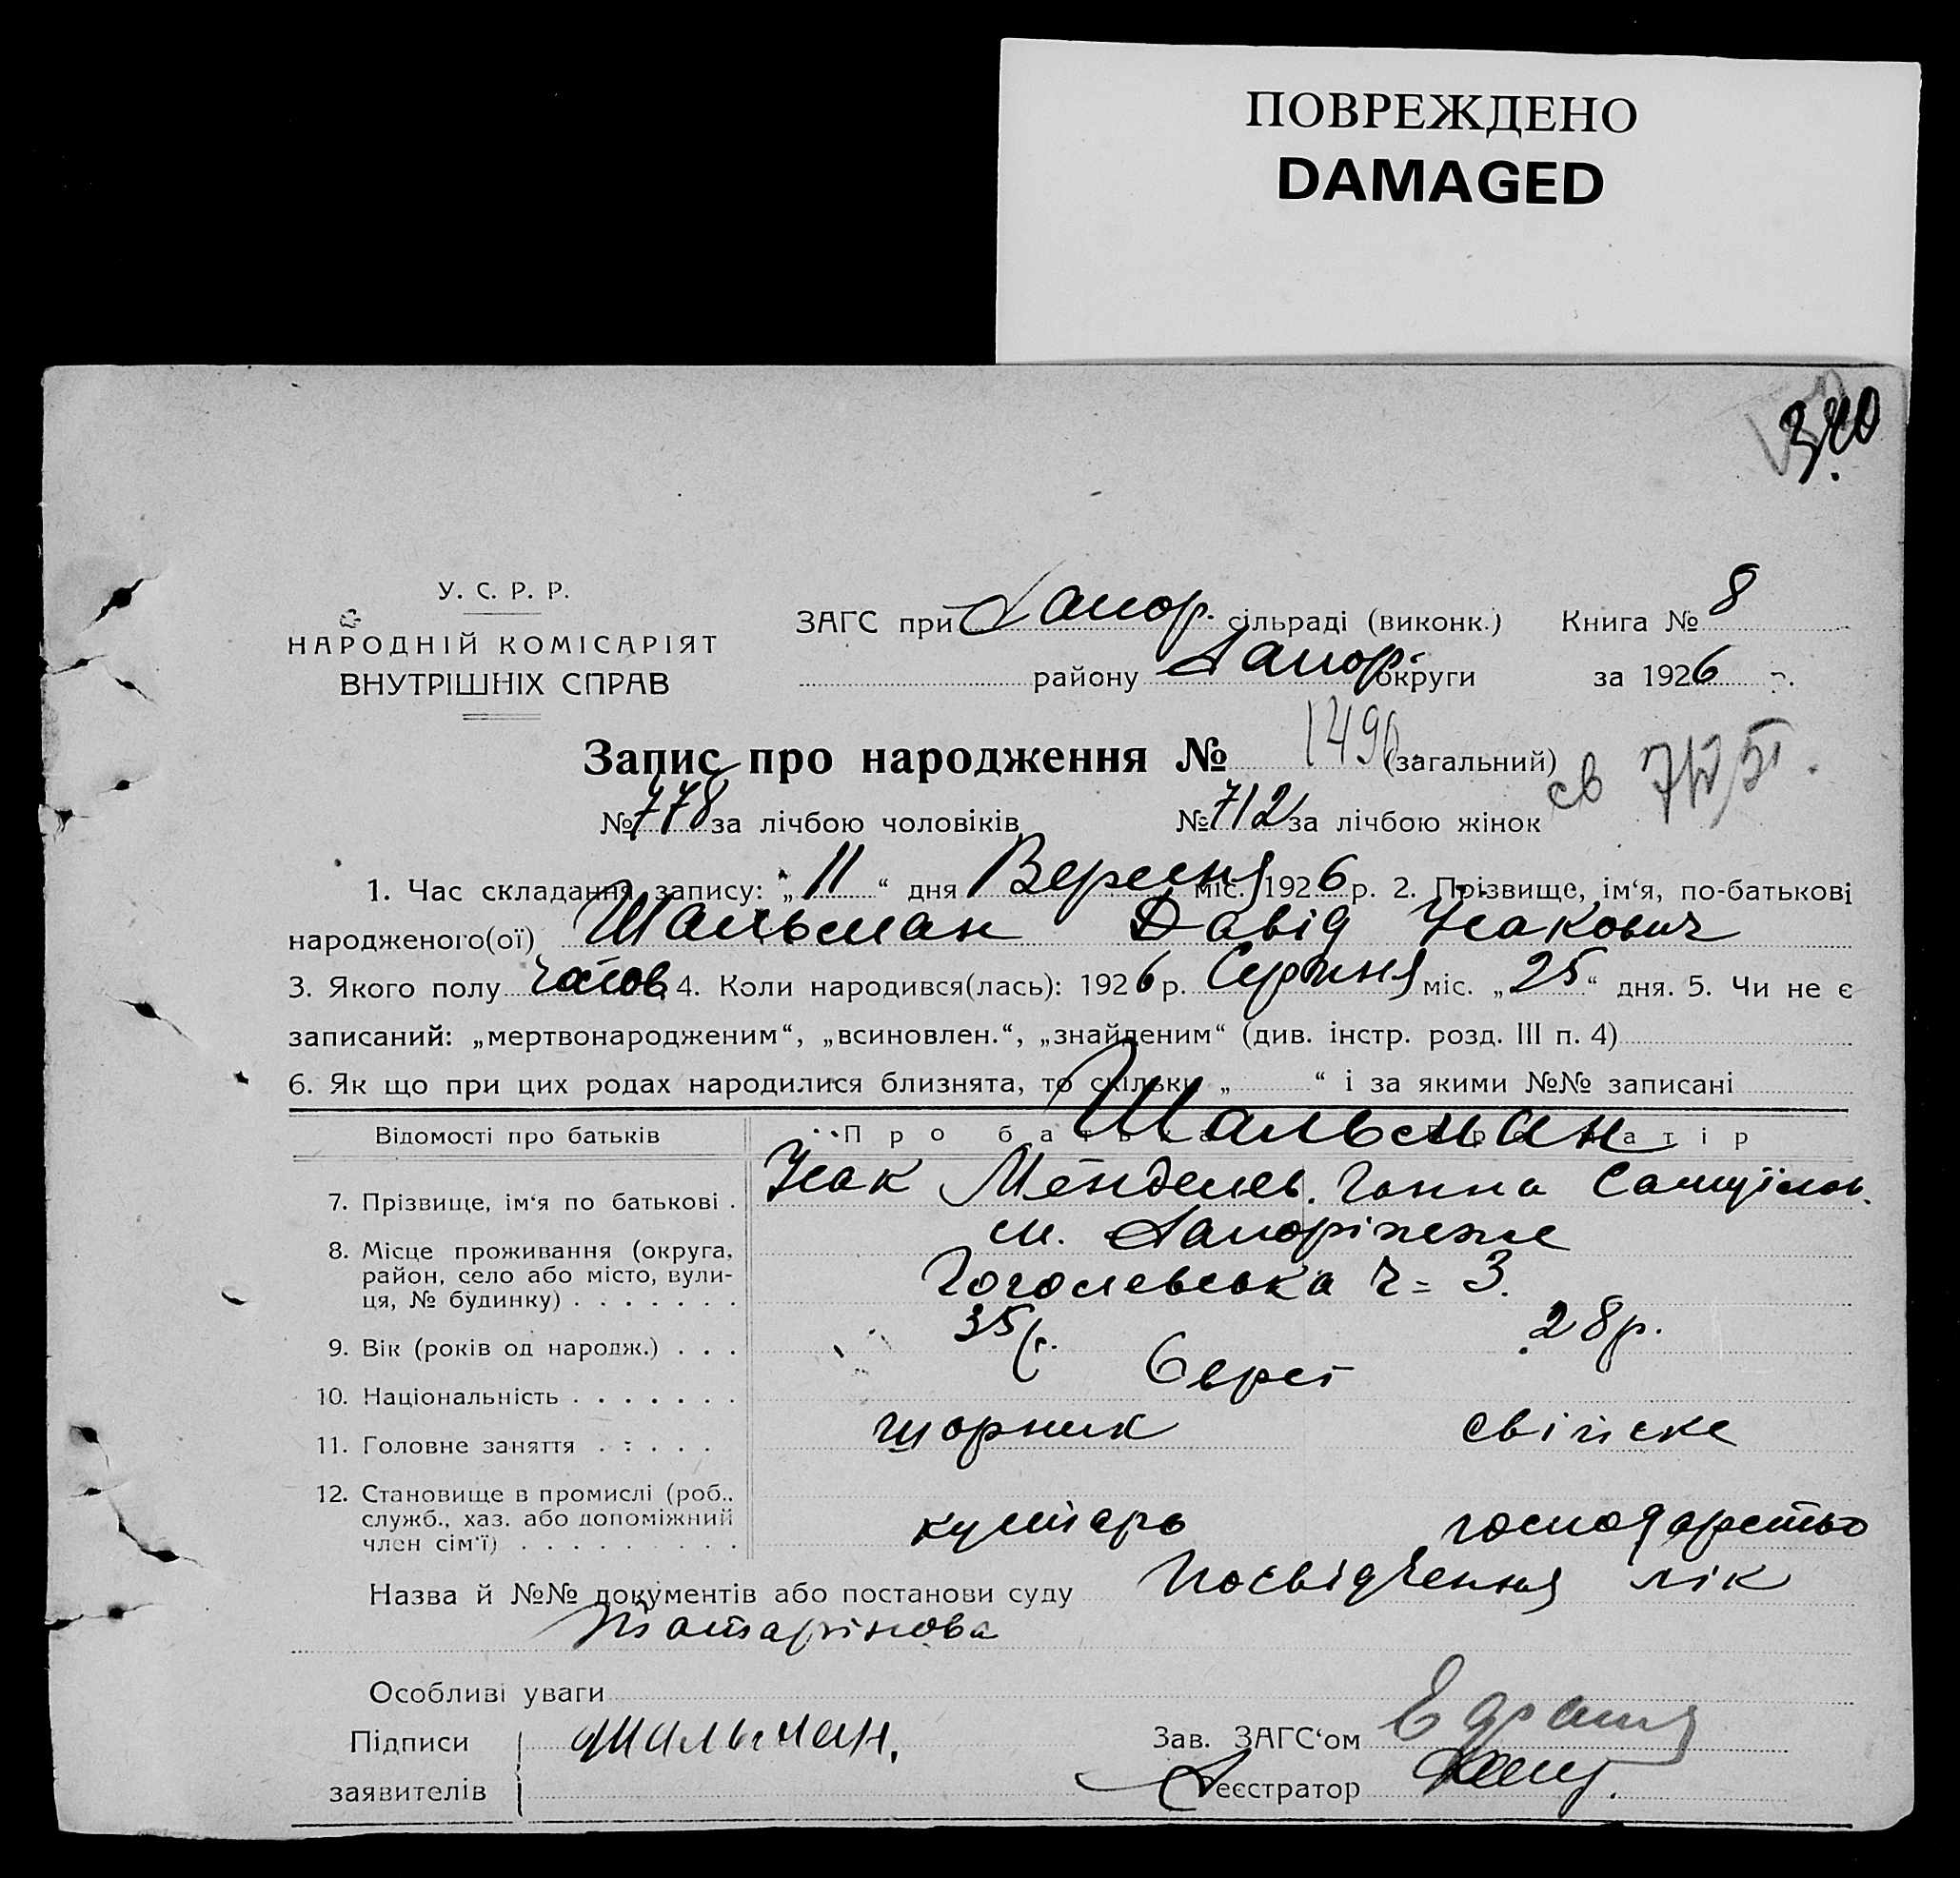 ПОВРЕЖДЕНО
DAMAGED
340
У. С. Р. Р.
НАРОДНІЙ КОМІСАРІЯТ
ВНУТРІШНІХ СПРАВ
ЗАГС при Запор. сільраді (виконк.) Книга № 8
району Запор. округи за 1926 р.
Запис про народження № 1490 (загальний)
№ 778 за лічбою чоловіків № 712 за лічбою жінок
1. Час складання запису: „11“ дня Вересня міс. 1926 р. 2. Прізвище, ім‘я, по-батькові
народженого(ої) Шальман Давід Ісакович
3. Якого полу чолов. 4. Коли народився(лась): 1926 р. Серпня міс. „25“ дня. 5. Чи не є
записаний: „мертвонародженим“, „всиновлен.“, „знайденим“ (див. інстр. розд. III п. 4)
6. Як що при цих родах народилися близнята, то скільки „ “ і за якими №№ записані
Відомості про батьків Про батька Про матір
Шальман
7. Прізвище, ім‘я по батькові . Ісак Менделев. Ганна Самуїлов.
8. Місце проживання (округа, м. Запоріжже
район, село або місто, вули-
ця, № будинку) . . . . . . . Гоголевська ч = 3.
9. Вік (років од народж.) . . . 35 р. 28 р.
10. Національність . . . . . . . Євреї
11. Головне заняття . . . . . шорник свійске
12. Становище в промислі (роб.,
служб., хаз. або допоміжний кустарь господарство
член сім‘ї) . . . . . . . . .
Назва й №№ документів або постанови суду Посвідчення лік
Татарінова
Особливі уваги
Підписи Шальман. Зав. ЗАГС‘ом
заявителів Реєстратор